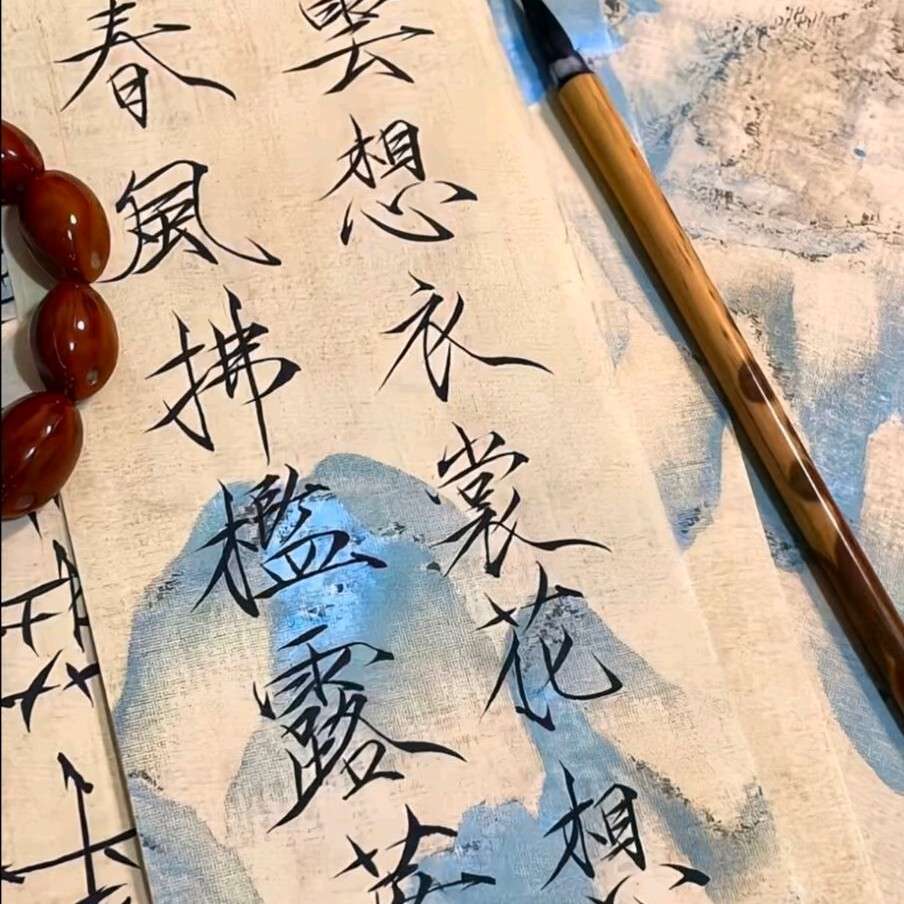 雲想衣裳花想
春風拂檻露